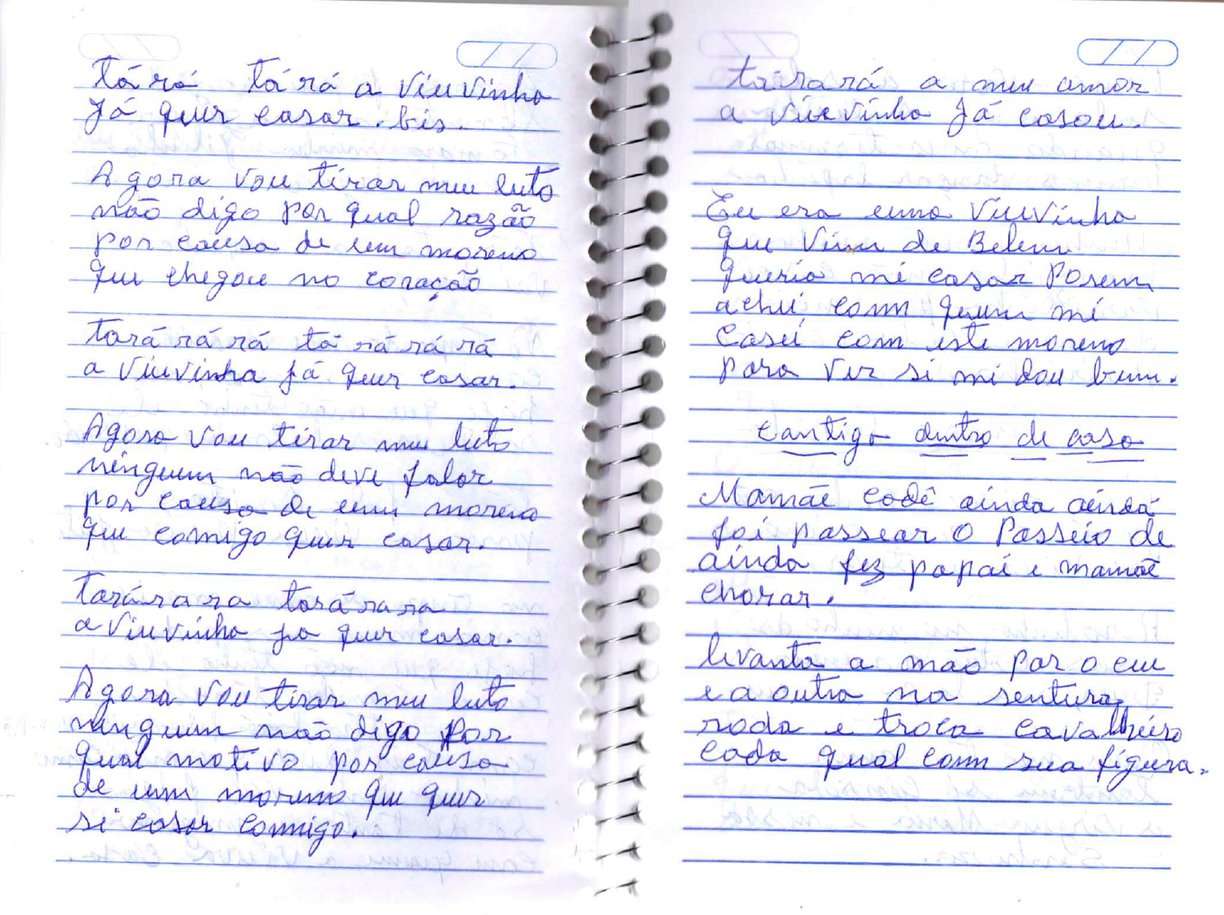 tá rá tá rá a viuvinha
já quer casar. bis.
Agora vou tirar meu luto
não digo por qual razão
por causa de um moreno
que chegou no coração
tará rá rá tá rá rá rá
a viuvinha já quer casar.
Agora vou tirar meu luto
ninguem não deve falar
por causa de um moreno
que comigo quer casar.
tarárara tarárara
a viuvinha ja quer casar.
Agora vou tirar meu luto
ninguem não digo por
qual motivo por causa
de um moreno que quer
si casar comigo.
tárarará a meu amor
a viuvinha já casou.
Eu era uma viuvinha
que vim de Belem
queria mi casar porem
achei com quem mi
casei com este moreno
para ver si mi dou bem.
Cantiga dentro de casa
Mamãe cadê ainda aindá
foi passear o passeio de
ainda fez papai e mamãe
chorar.
levanta a mão par o ceu
e a outra na sentura,
roda e troca cavalheiro
cada qual com sua figura.